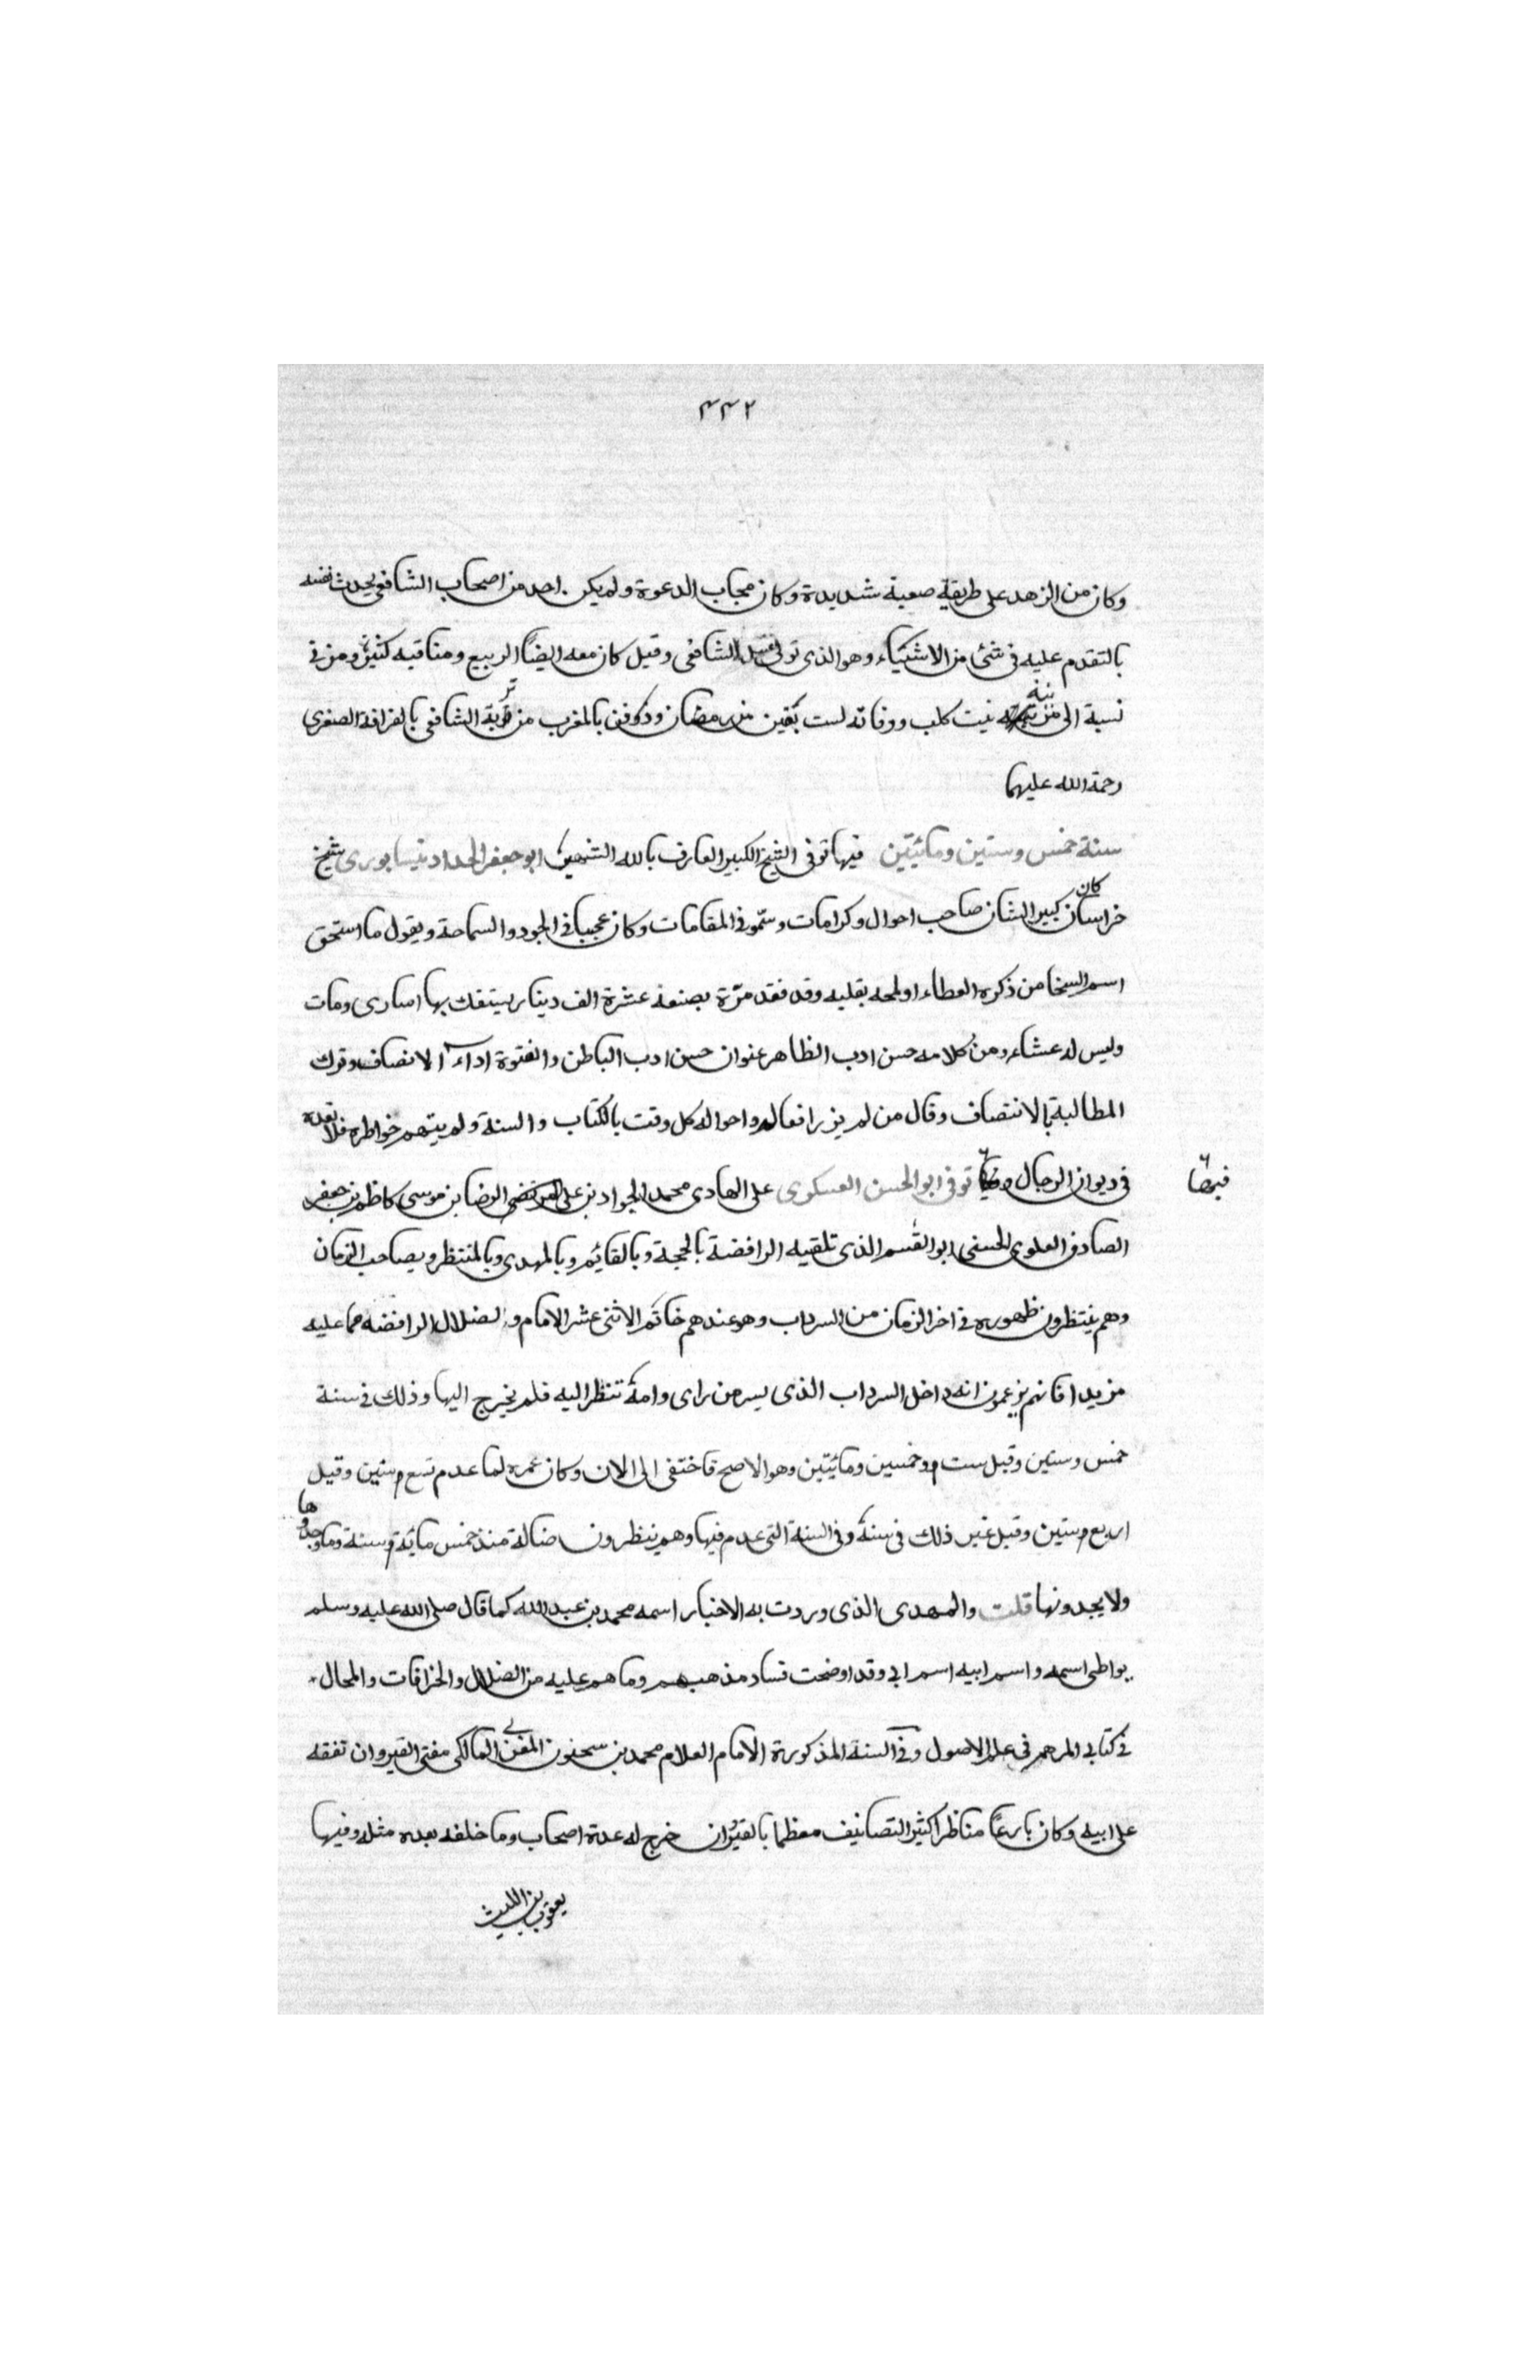 ٤٤٢
وكان من الزهد على طريقة صعبة شديدة وكان مجاب الدعوة ولم يكن احد من اصحاب الشافعي يحدث نفسه
بالتقدم عليه في شئ من الاشياء وهو الذي تولى غسل الشافعي وقيل كان معه ايضًا الربيع ومناقبه كثيرة ومزني
نسبة الى مزينة بنت كلب ووفاته لست بقين من رمضان ودفن بالمغرب من تربة الشافعي بالقرافة الصغرى
رحمة الله عليهما
سنة خمس وستين ومائتين فيها توفى الشيخ الكبير العارف بالله الشهير ابو جعفر الحداد نيسابورى شيخ
خراسان كان كبير الشان صاحب احوال وكرامات وسمّو في المقامات وكان عجبا في الجود والسماحة ويقول ما استحق
اسم السخا من ذكره العطاء او لمحه بقلبه وقد فقد مرّة بصنعة عشرة الف دينار يستفك بها اسارى ومات
وليس له عشاء ومن كلامه حسن ادب الظاهر عنوان حسن ادب الباطن والفتوة اداء الانصاف وترك
المطالبة بالانتصاف وقال من لم يزر افعاله واحواله كل وقت بالكتاب والسنة ولم يتهم خواطره فلا تعده
في ديوان الرجال وفيها توفى ابو الحسن العسكرى على الهادى محمد الجواد بن على المرتضى الرضا بن موسى كاظم بن جعفر
فيها
الصادق العلوى الحسنى ابو القسم الذى تلقبه الرافضة بالحجة وبالقائم وبالمهدى وبالمنتظر وبصاحب الزمان
وهم ينتظرون ظهوره في اخر الزمان من السرداب وهو عندهم خاتم الاثنى عشر الامام و لضلال الرافضه مما عليه
مزيد افانهم يزعمون انه داخل السرداب الذى بسر من راى وامهٔ تنظر اليه فلم يخرج اليها وذلك في سنة
خمس وستين وقيل ست وخمسين ومائتين وهو الاصح فاختفى الى الان وكان عمره لما عدم تسع سنين وقيل
اربع سنين وقيل غير ذلك في سنهٔ وفى السنة التى عدم فيها وهم ينظرون ضالة منذ خمس ماية سنة وما وجدوها
ولا يجدونها قلت والمهدى الذى وردت به الاخبار اسمه محمد بن عبد الله كما قال صلى الله عليه وسلم
يواطى اسمه واسم ابيه اسم ابى وقد اوضحت فساد مذهبهم وما هم عليه من الضلال والخرافات والمحال
في كتابى المرهم في علم الاصول وفى السنة المذكورة الامام العلام محمد بن سحنون المغربى المالكى مفتى القيروان تفقه
على ابيه وكان بارعًا مناظرا كثير التصانيف معظما بالقيروان خرج له عدة اصحاب وما خلفه بعده مثله وفيها
يعقوب بن الليث